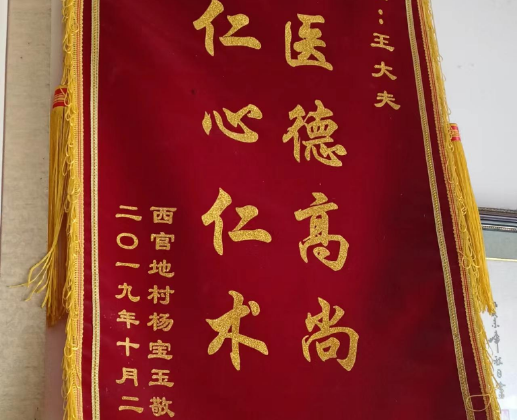 ：王大夫
医德高尚
仁心仁术
西官地村杨宝玉敬
二〇一九年十月二